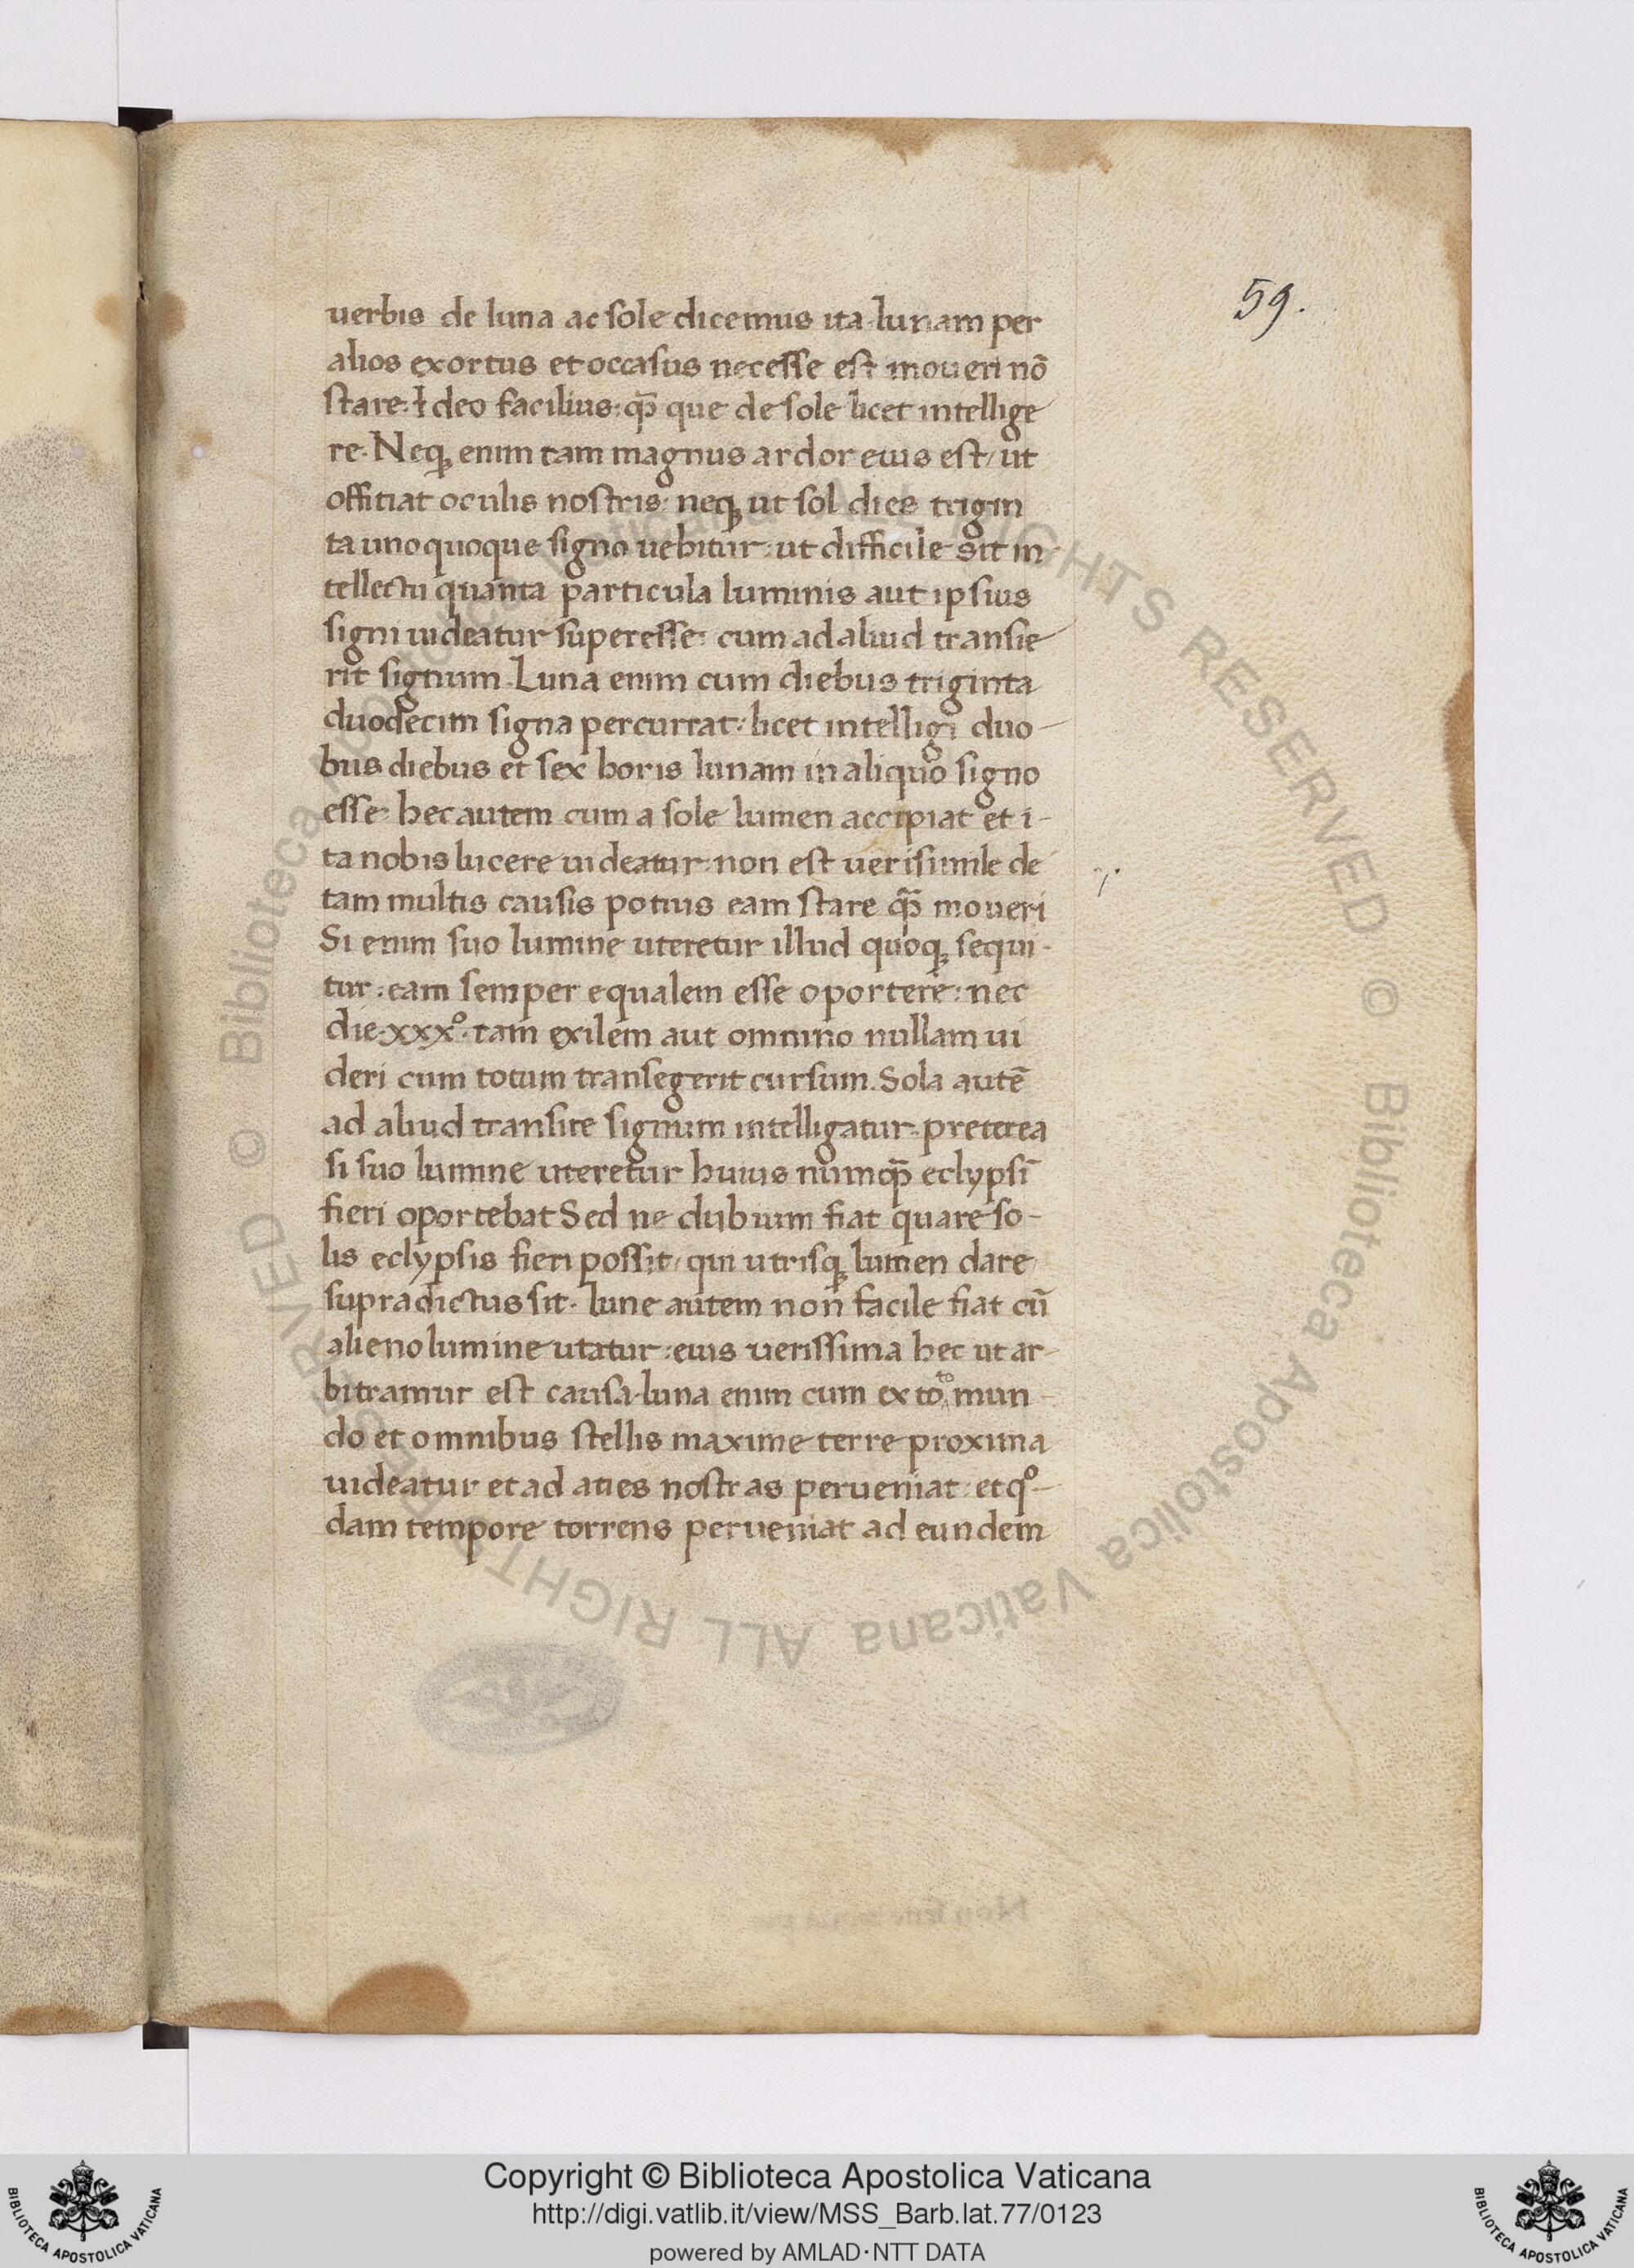 59.
uerbis de luna ac sole dicemus ita lunam per
alios exortus et occasus necesse est moueri nō
stare. Ideo facilius: qꝫ̄ que de sole licet intellige
re. Neqꝫ enim tam magnus ardor eius est, ut
offitiat oculis nostris: neqꝫ ut sol dies trigin
ta unoquoque signo uehitur: ut difficile sit in-
tellectu quanta particula luminis aut ipsius
signi uideatur superesse: cum ad aliud transie
rit signum. Luna enim cum diebus triginta
duodecim signa percurrat: licet intelligi duo-
bus diebus et sex horis lunam in aliquo signo
esse: hec autem cum a sole lumen accipiat et i-
ta nobis lucere uideatur: non est uerisimile de
tam multis causis potius eam stare qꝫ̄ moueri
Si enim suo lumine uteretur illud quoqꝫ sequi-
tur: eam semper equalem esse oportere: nec
die .xxxº. tam exilem aut omnino nullam ui
deri cum totum transegerit cursum. Sola autē
ad aliud transire signum intelligatur. preterea
si suo lumine uteretur huius numqꝫ̄ eclypsī
fieri oportebat Sed ne dubium fiat quare so-
lis eclypsis fieri possit, qui utrisqꝫ lumen dare
supradictus sit. lune autem non facile fiat cū
alieno lumine utatur: eius uerissima hec ut ar-
bitramur est causa. luna enim cum ex toto mun-
do et omnibus stellis maxime terre proxima
uideatur et ad aties nostras perueniat: et qº-
dam tempore torrens perueniat ad eundem
Copyright © Biblioteca Apostolica Vaticana
http://digi.vatlib.it/view/MSS_Barb.lat.77/0123
powered by AMLAD·NTT DATA
BIBLIOTECA APOSTOLICA VATICANA
BIBLIOTECA APOSTOLICA VATICANA
© Biblioteca Apostolica Vaticana ALL RIGHTS RESERVED © Biblioteca Apostolica Vaticana ALL RIGHTS RESERVED